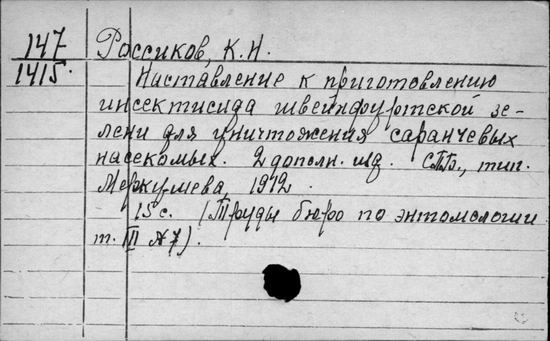 147
1415.
Россиков, К.Н.
Наставление к приготовлению
инсектисида швейнфуртской зе-
лени для уничтожения саранчевых
насекомых. 2 дополн. изд. СПБ., тип.
Меркушева, 1912.
15 с. (Труды бюро по энтомологии
т. III №7).